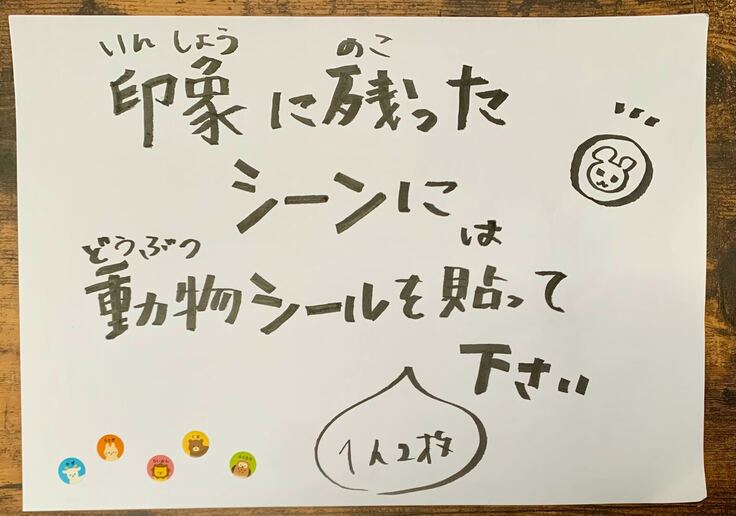 いんしょう のこ
印象に残った
シーンに
どうぶつ は
動物シールを貼って
下さい
1人2枚